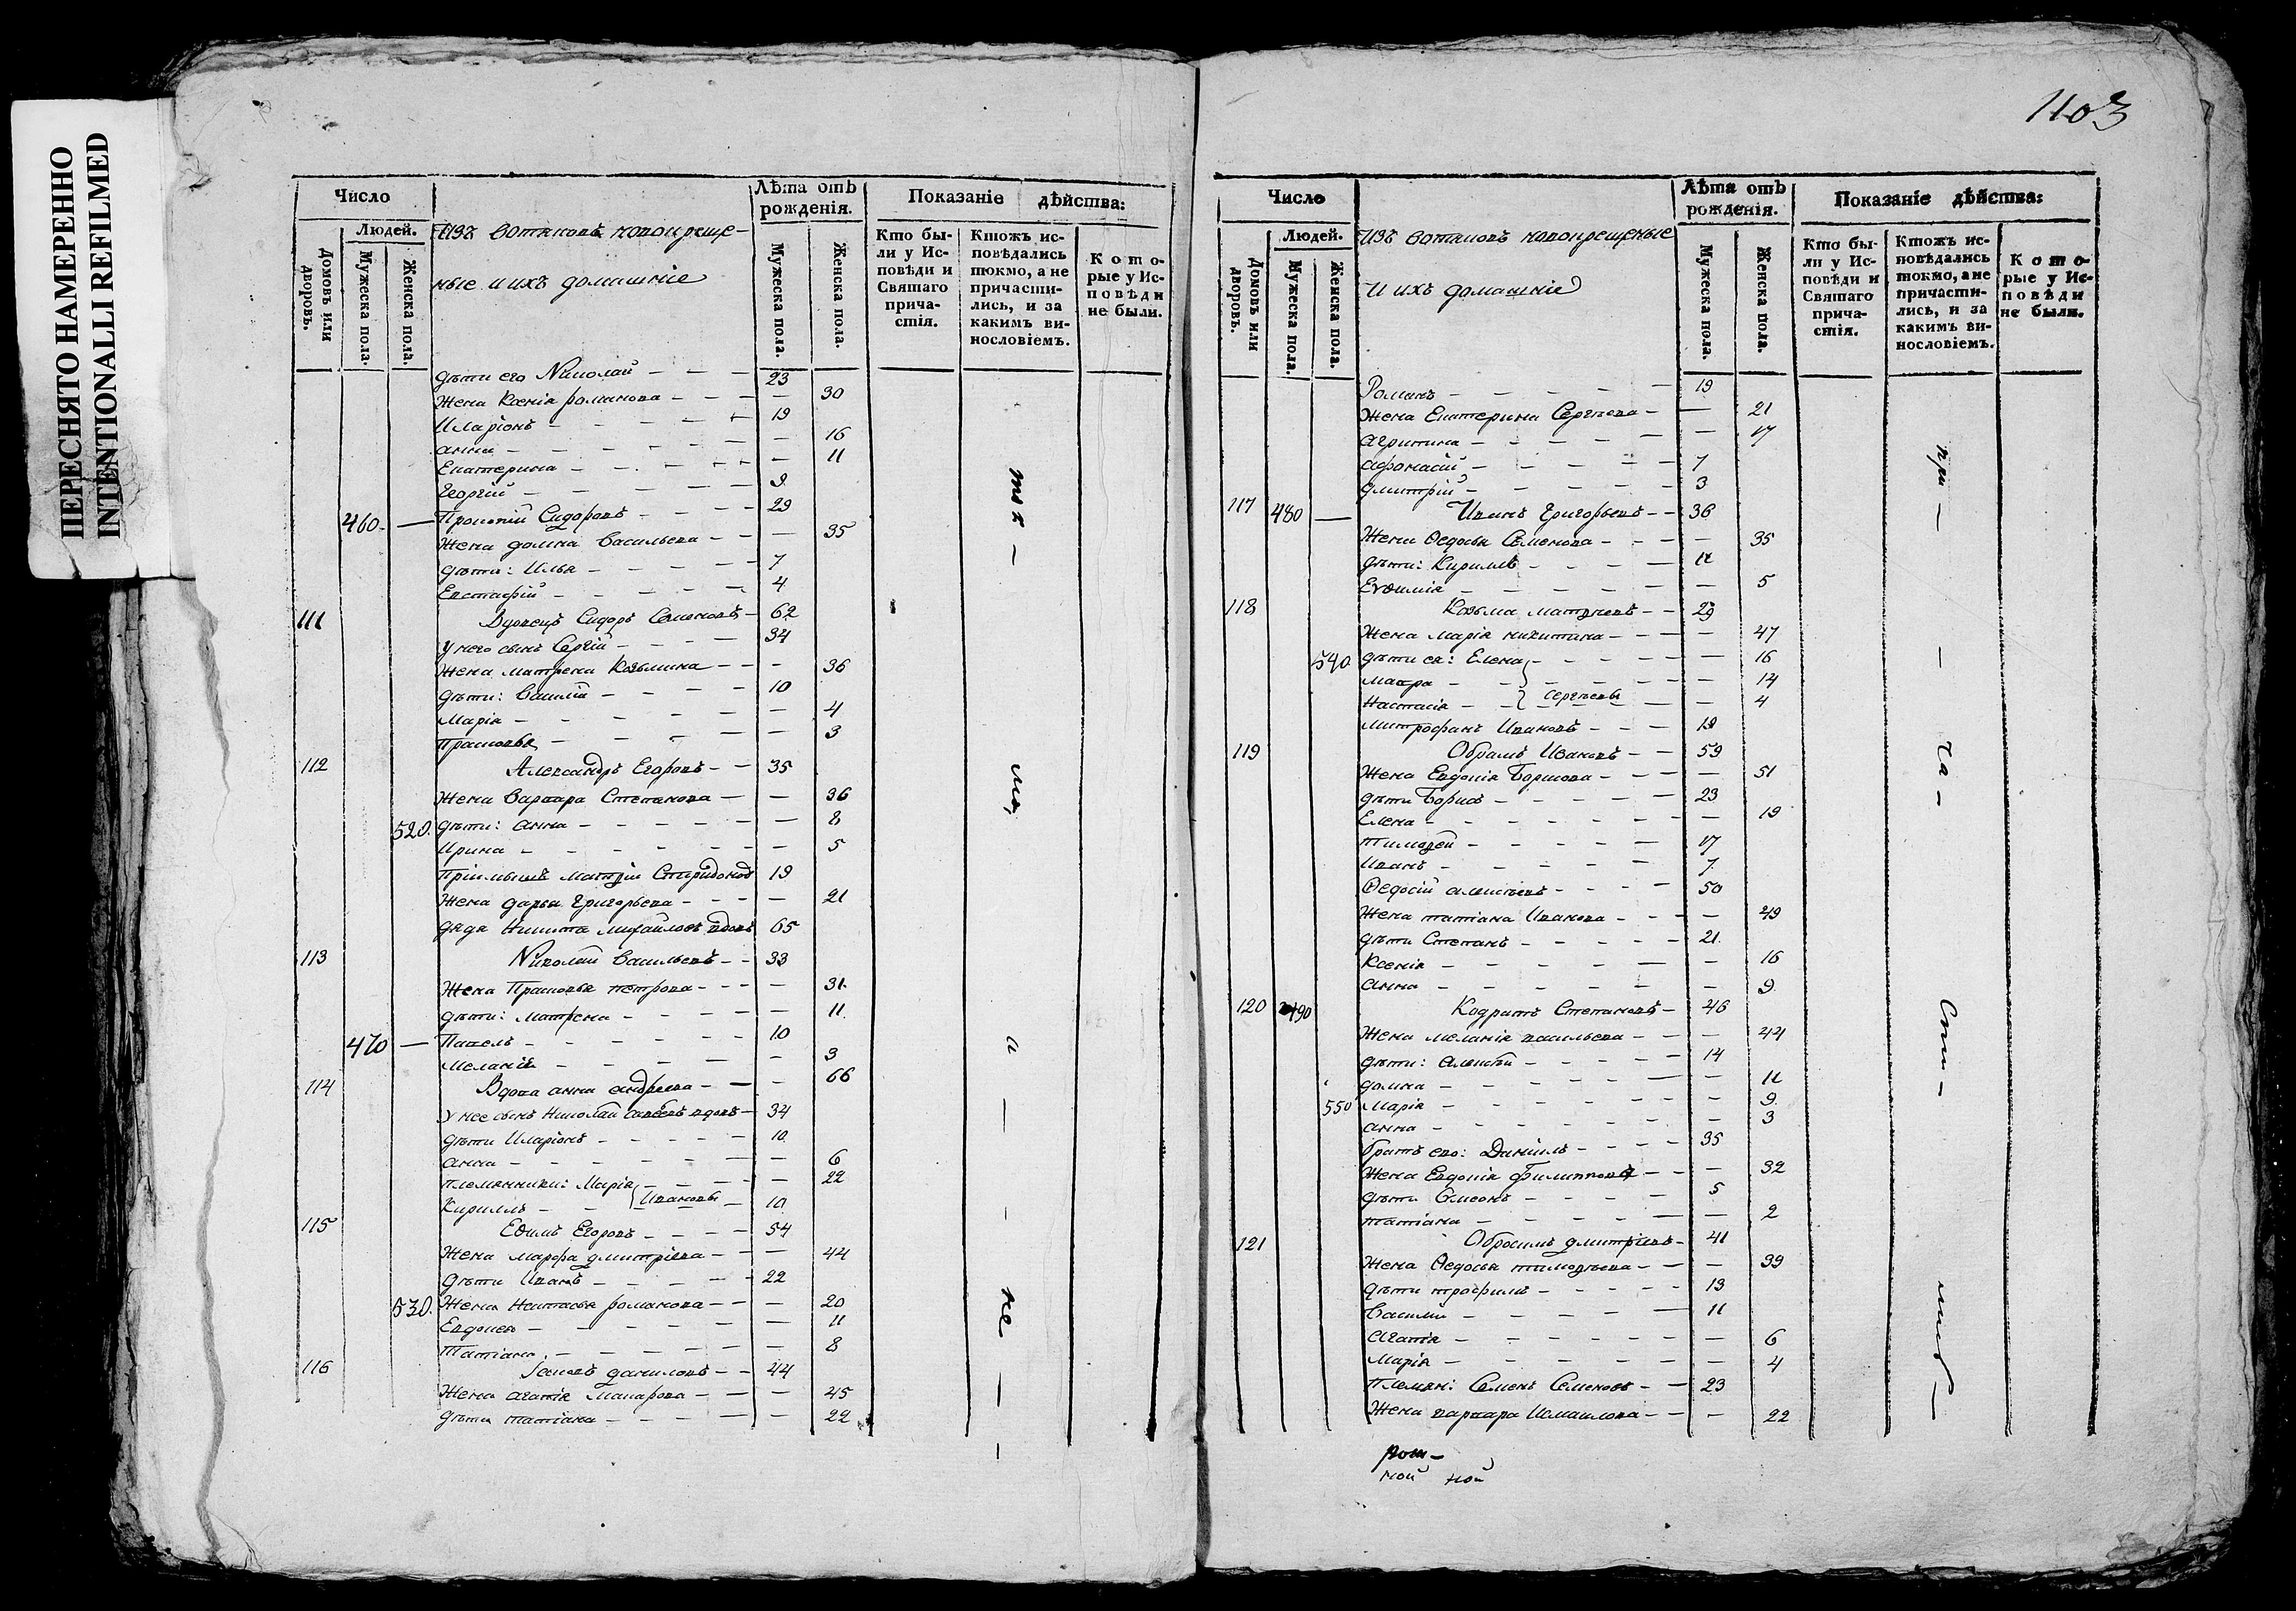 ПЕРЕСНЯТО НАМЕРЕННО
INTENTIONALLI REFILMED
Число
Людей.
Домовъ или дворовъ.
Мужеска пола.
Женска пола.
Изъ вотяковъ новокреще-
ные и ихъ домашніе
Лѣта отъ рожденія.
Мужеска пола.
Женска пола.
Показаніе дѣйства:
Кто бы-
ли у Ис-
повѣди и
Святаго
прича-
стія.
Ктожъ ис-
повѣдались
токмо, а не
причасти-
лись, и за
какимъ ви-
нословіемъ.
Кото-
рые у Ис-
повѣди
не были.
дѣти его Николай — — — 23
Жена Ксенія романова — — — — 30
Иларіонъ — — — — 19
анна — — — — — 16
Екатерина — — — — — 11
Георгій — — — — 9
460 — Прокопій Сидоровъ — — — 29
Жена домна Васильева — — — 35
дѣти: Илья — — — — 7
Евстафій — — — — 4
111 Вдовецъ Сидоръ Семеновъ — 62
У него сынъ Сергій — — — 34
Жена матрена Козьмина — — — 36
дѣти: Василій — — — — 10
Марія — — — — — 4
Прасковья — — — — — 3
112 Александръ Егоровъ — — 35
Жена Варвара Степанова — — 36
520. дѣти: анна — — — — — 8
Ирина — — — — — 5
Пріимышъ Матвій Спиридонов 19
Жена дарья Григорьева — — — — 21
дядя Никита Михайловъ вдовъ 65
113 Николай Васильевъ — — 33
Жена Прасковья петрова — — — — 31
дѣти: Матрена — — — — — 11
470 — Павелъ — — — — — 10
Меланія — — — — — 3
114 Вдова анна андреева — — — 66
У нее сынъ Николай вдовъ — 34
дѣти Иларіонъ — — — — 10
анна — — — — — 6
племянники: Марія — — — — 22
Кирилъ — — Ивановы — 10
115 Ефимъ Егоровъ — — — 54
Жена марфа дмитріева — — — 44
дѣти Иванъ — — — — 22
530. Жена Настасья романова — — — 20
Евдокея — — — — — 11
Татіана — — — — — 8
116 Іаковъ даниловъ — — 44
Жена агапія Макарова — — — 45
дѣти татіана — — — — — 22
тѣ —
мъ
а
—
не
—
1103
Число
Людей.
Домовъ или дворовъ.
Мужеска пола.
Женска пола.
Изъ вотяковъ новокрещеные
И ихъ домашніе
Лѣта отъ рожденія.
Мужеска пола.
Женска пола.
Показаніе дѣйства:
Кто бы-
ли у Ис-
повѣди и
Святаго
прича-
стія.
Ктожъ ис-
повѣдались
токмо, а не
причасти-
лись, и за
какимъ ви-
нословіемъ.
Кото-
рые у Ис-
повѣди
не были.
Романъ — — — — — 19
Жена Екатерина Сергѣева — — 21
агрипина — — — — — 17
афонасій — — — — — 7
дмитрій — — — — — 3
117 480 — Иванъ Григорьевъ — — 36
Жена Ѳедосья Семенова — — — — 35
дѣти: Кирилъ — — — — 11
Евѳимія — — — — — 5
118 Козьма матвѣевъ — — 29
Жена Марія никитина — — — — 47
540 дѣти ея: Елена — — — — — 16
Мавра — — — — — 14
Настасія — — Сергѣевы — — 4
Митрофанъ Ивановъ — — — 19
119 Обрамъ Ивановъ — — 59
Жена Евдокія Борисова — — — — 51
дѣти Борисъ — — — — 23
Елена — — — — — 19
Тимоѳей — — — — — 17
Иванъ — — — — — 7
Ѳедосій алексѣевъ — — — — 50
Жена татіана Иванова — — — — 49
дѣти Степанъ — — — — — 21
Ксенія — — — — — 16
анна — — — — — 9
120 490 Кодратъ Степановъ — 46
Жена меланія васильева — — — 44
дѣти: алексѣй — — — — 14
домна — — — — — 11
550 Марія — — — — — 9
анна — — — — — 3
братъ его: Даніилъ — — — — 35
Жена Евдокія Филиппова — — — 32
дѣти Симеонъ — — — — 5
татіана — — — — — 2
121 Обросимъ дмитріевъ — 41
Жена Ѳедосья тимоѳѣева — — — 39
дѣти трофимъ — — — — — 13
Василій — — — — — 11
Агапія — — — — — 6
Марія — — — — — 4
Племян: Семенъ Семеновъ — — 23
Жена варвара Исмаилова — — — 22
при —
—
ча —
сти —
лись —